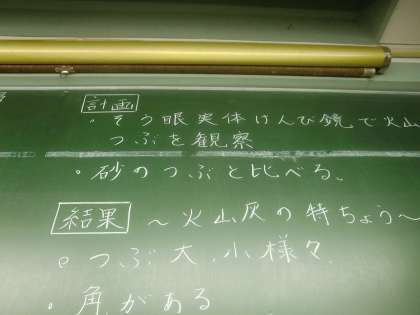 計画
・そう眼実体けんび鏡で火山
つぶを観察
・砂のつぶと比べる。
結果 〜火山灰の特ちょう〜
・つぶ大、小様々
・角がある